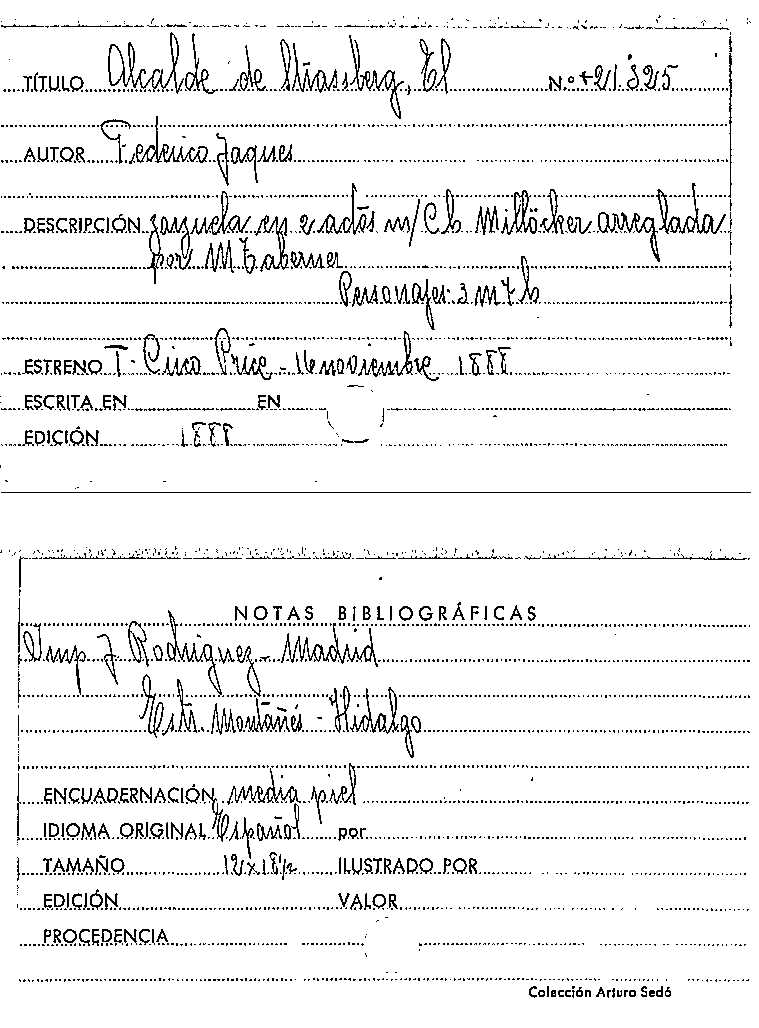 TÍTULO Alcalde de Strassberg, El N.º +21.825
AUTOR Federico Jaques
DESCRIPCIÓN zarzuela en 2 actos m/ C b Millöcker arreglada
por M Taberner
Personajes 3 m 7 h
ESTRENO T. Circo Price - 16 noviembre 1888
ESCRITA EN EN
EDICIÓN 1888
NOTAS BIBLIOGRÁFICAS
Imp J Rodriguez - Madrid
Montañés - Hidalgo
ENCUADERNACIÓN media piel
IDIOMA ORIGINAL Español por
TAMAÑO 12x18½ ILUSTRADO POR
EDICIÓN VALOR
PROCEDENCIA
Colección Arturo Sedó